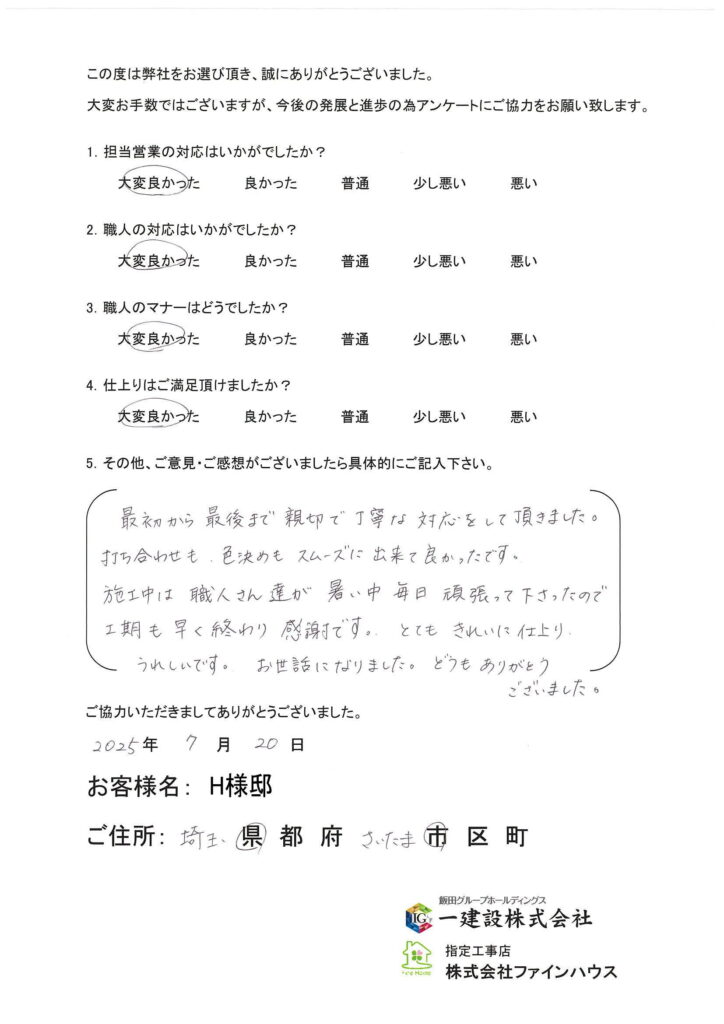 この度は弊社をお選び頂き、誠にありがとうございました。
大変お手数ではございますが、今後の発展と進歩の為アンケートにご協力をお願い致します。
1. 担当営業の対応はいかがでしたか？
大変良かった 良かった 普通 少し悪い 悪い
2. 職人の対応はいかがでしたか？
大変良かった 良かった 普通 少し悪い 悪い
3. 職人のマナーはどうでしたか？
大変良かった 良かった 普通 少し悪い 悪い
4. 仕上りはご満足頂けましたか？
大変良かった 良かった 普通 少し悪い 悪い
5. その他、ご意見・ご感想がございましたら具体的にご記入下さい。
最初から最後まで親切で丁寧な対応をして頂きました。
打ち合わせも、色決めもスムーズに出来て良かったです。
施工中は職人さん達が暑い中毎日頑張って下さったので
工期も早く終わり感謝です。とてもきれいに仕上り、
うれしいです。お世話になりました。どうもありがとう
ございました。
ご協力いただきましてありがとうございました。
2025年 7月 20日
お客様名： H様邸
ご住所： 埼玉 県 都 府 さいたま 市 区 町
飯田グループホールディングス
IG 一建設株式会社
指定工事店
Fine House 株式会社ファインハウス